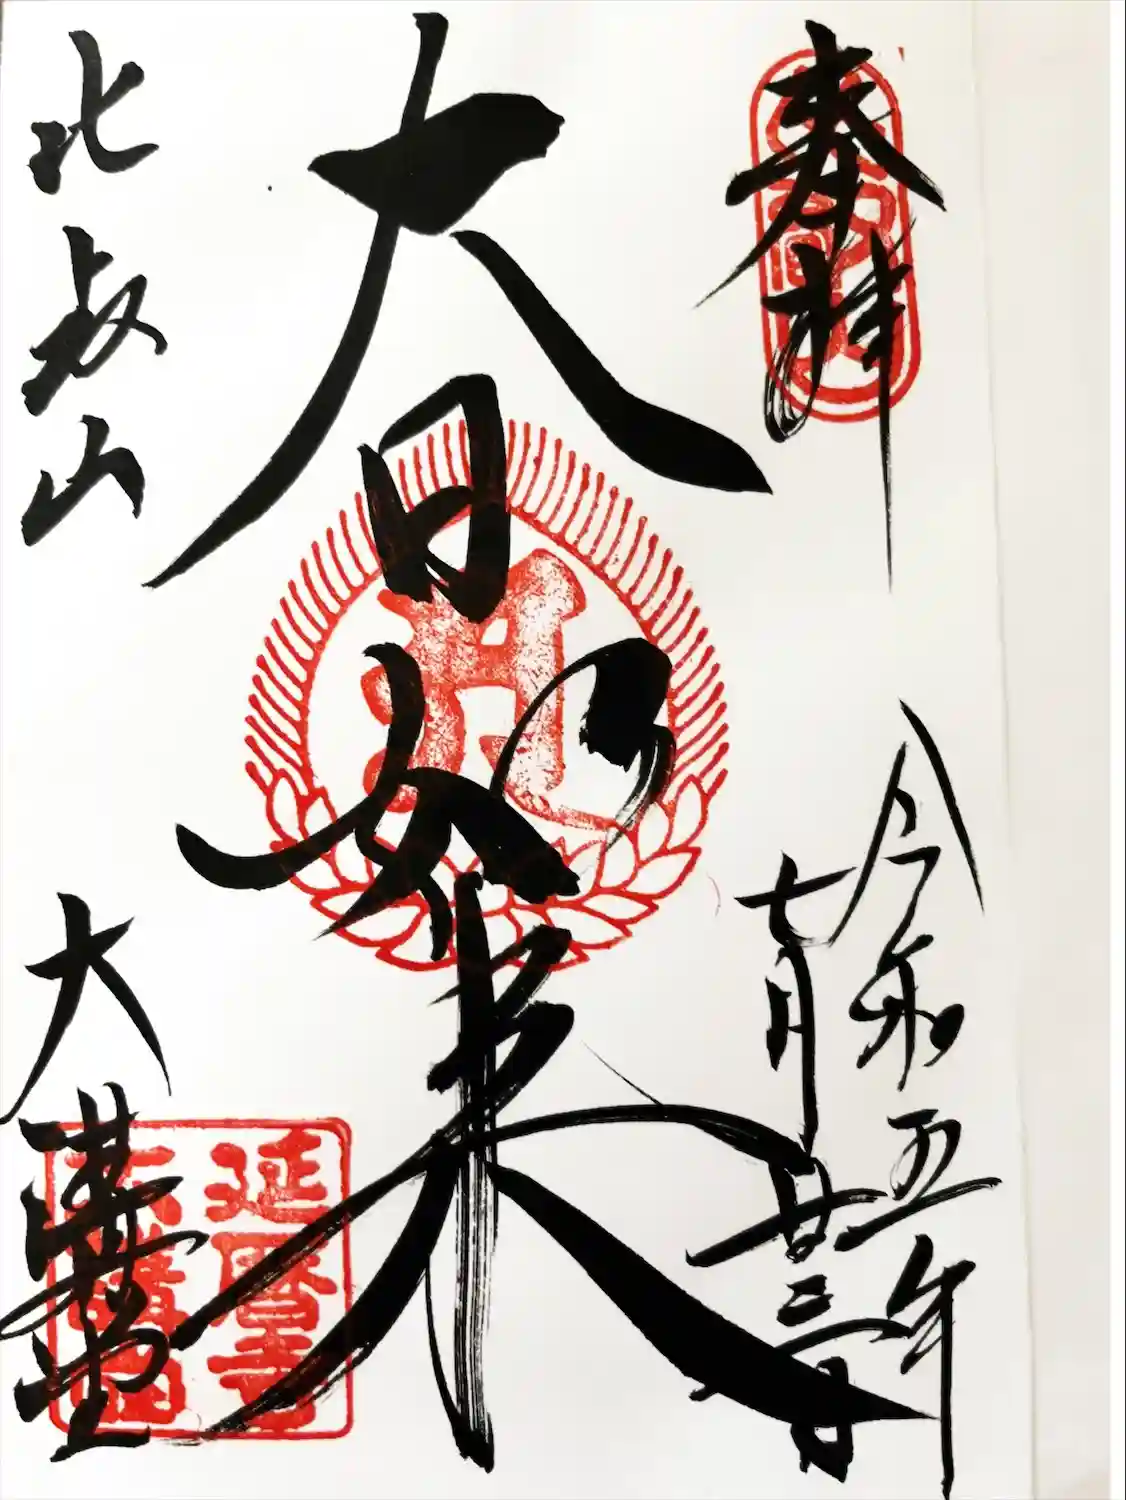 奉拝
令和五年
七月廿三日
大日如来
比叡山
大講堂
延暦寺
大講堂